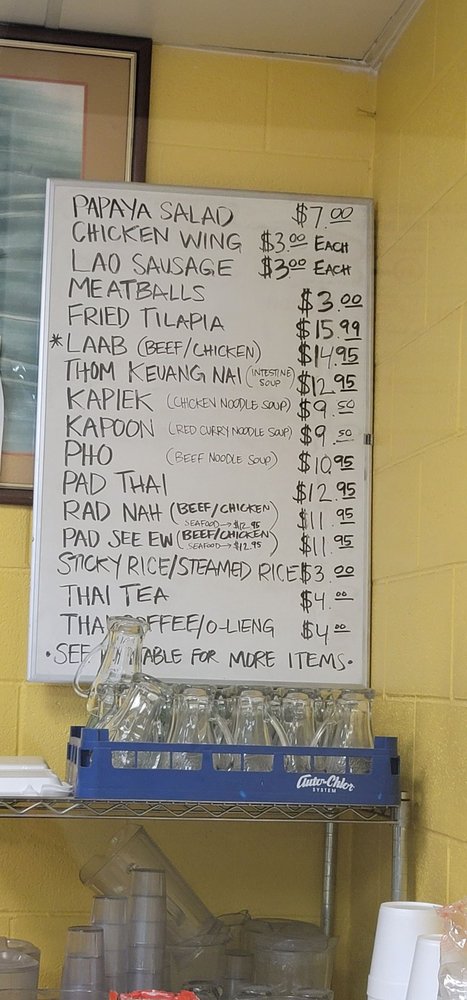 PAPAYA SALAD $7.00
CHICKEN WING $3.00 EACH
LAO SAUSAGE $3.00 EACH
MEATBALLS $3.00
FRIED TILAPIA $15.99
*LAAB (BEEF/CHICKEN) $14.95
THOM KEUANG NAI (INTESTINE SOUP) $12.95
KAPIEK (CHICKEN NOODLE SOUP) $9.50
KAPOON (RED CURRY NOODLE SOUP) $9.50
PHO (BEEF NOODLE SOUP) $10.95
PAD THAI $12.95
RAD NAH (BEEF/CHICKEN) $11.95
SEAFOOD→$12.95
PAD SEE EW (BEEF/CHICKEN) $11.95
SEAFOOD→$12.95
STICKY RICE/STEAMED RICE $3.00
THAI TEA $4.00
THAI COFFEE/O-LIENG $4.00
•SEE TABLE FOR MORE ITEMS•
Auto-Chlor
SYSTEM